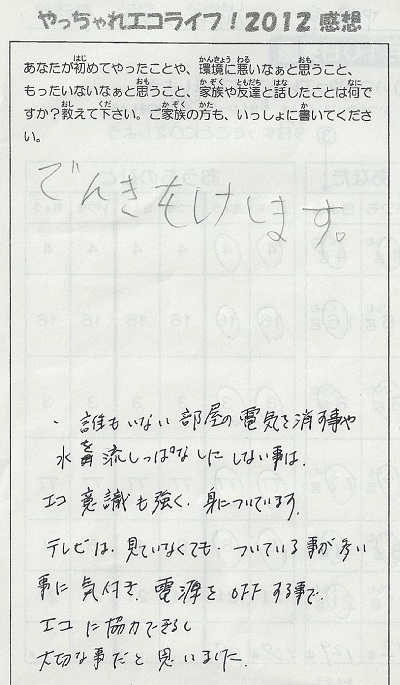 やっちゃれエコライフ！2012 感想
あなたが初めてやったことや、環境に悪いなぁと思うこと、
もったいないなぁと思うこと、家族や友達と話したことは何で
すか？教えて下さい。ご家族の方も、いっしょに書いてくださ
い。
でんきもけします。
・誰もいない部屋の電気を消す事や
水を流しっぱなしにしない事は、
エコ意識も強く、身についています。
テレビは、見ていなくても、ついている事が多い
事に気付き、電源をOFFする事で、
エコに協力できるし
大切な事だと思いました。